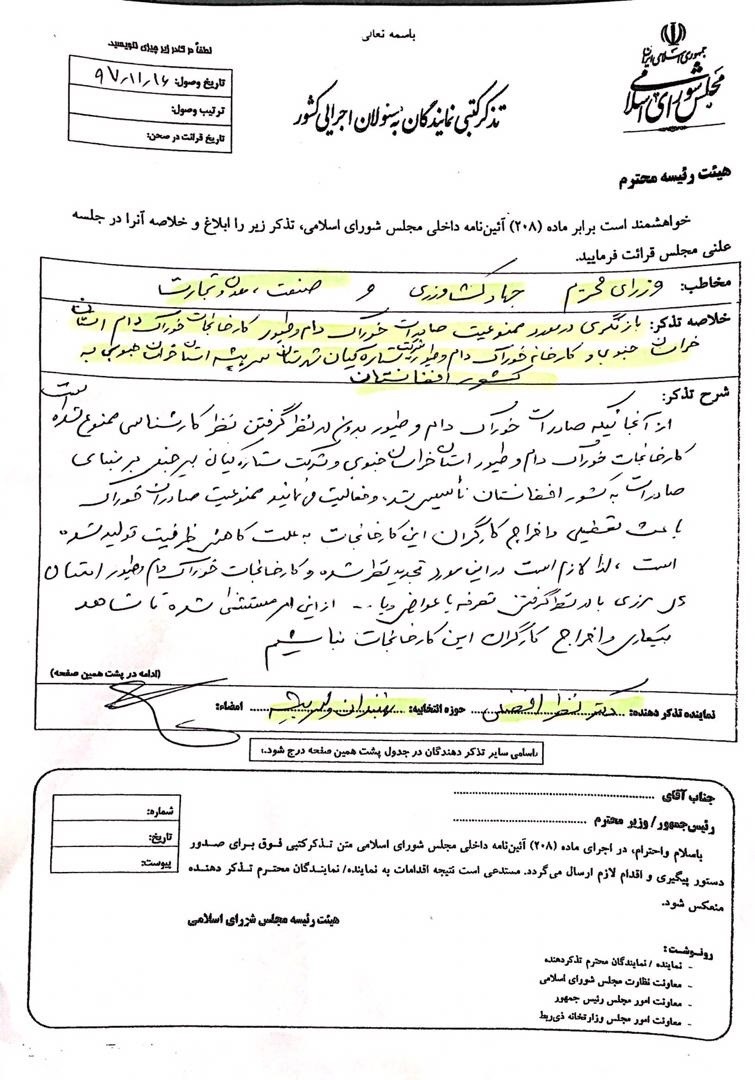 باسمه تعالی
جمهوری اسلامی ایران
مجلس شورای اسلامی
لطفاً در کادر زیر چیزی ننویسید.
تاریخ وصول: ۹۷/۱۱/۱۶
ترتیب وصول:
تاریخ قرائت در صحن:
تذکر کتبی نمایندگان به مسئولان اجرایی کشور
هیئت رئیسه محترم
خواهشمند است برابر ماده (۲۰۸) آئین‌نامه داخلی مجلس شورای اسلامی، تذکر زیر را ابلاغ و خلاصه آنرا در جلسه
علنی مجلس قرائت فرمایید.
مخاطب: وزرای محترم جهاد کشاورزی و صنعت، معدن و تجارت
خلاصه تذکر: بازنگری در مورد ممنوعیت صادرات خوراک دام و طیور کارخانجات خوراک دام استان
خراسان جنوبی و کارخانه خوراک دام و طیور شرکت ستاره کیان شهرستان سربیشه استان خراسان جنوبی به
کشور افغانستان
شرح تذکر:
از آنجائیکه صادرات خوراک دام و طیور بدون در نظر گرفتن نظر کارشناسی ممنوع شده است
کارخانجات خوراک دام و طیور استان خراسان جنوبی و شرکت ستاره کیان بیرجند بر مبنای
صادرات به کشور افغانستان تأسیس شد، و فعالیت می نمایند ممنوعیت صادرات خوراک
باعث تعطیلی و اخراج کارگران این کارخانجات به علت کاهش ظرفیت تولید شده
است، لذا لازم است در این مورد تجدید نظر شده و کارخانجات خوراک دام و طیور استان
های مرزی با در نظر گرفتن تعرفه یا عوارض و یا ... از این امر مستثنی شده تا شاهد
بیکاری و اخراج کارگران این کارخانجات نباشیم
(ادامه در پشت همین صفحه)
نماینده تذکر دهنده: دکتر نظر افضلی حوزه انتخابیه: نهبندان و سربیشه امضاء:
اسامی سایر تذکر دهندگان در جدول پشت همین صفحه درج شود.
جناب آقای
رئیس‌جمهور/ وزیر محترم
شماره:
تاریخ:
پیوست:
باسلام واحترام، در اجرای ماده (۲۰۸) آئین‌نامه داخلی مجلس شورای اسلامی متن تذکرکتبی فوق برای صدور
دستور پیگیری و اقدام لازم ارسال می‌گردد. مستدعی است نتیجه اقدامات به نماینده/ نمایندگان محترم تذکر دهنده
منعکس شود.
هیئت رئیسه مجلس شورای اسلامی
رونوشت:
- نماینده / نمایندگان محترم تذکردهنده
- معاونت نظارت مجلس شورای اسلامی
- معاونت امور مجلس رئیس جمهور
- معاونت امور مجلس وزارتخانه ذی‌ربط